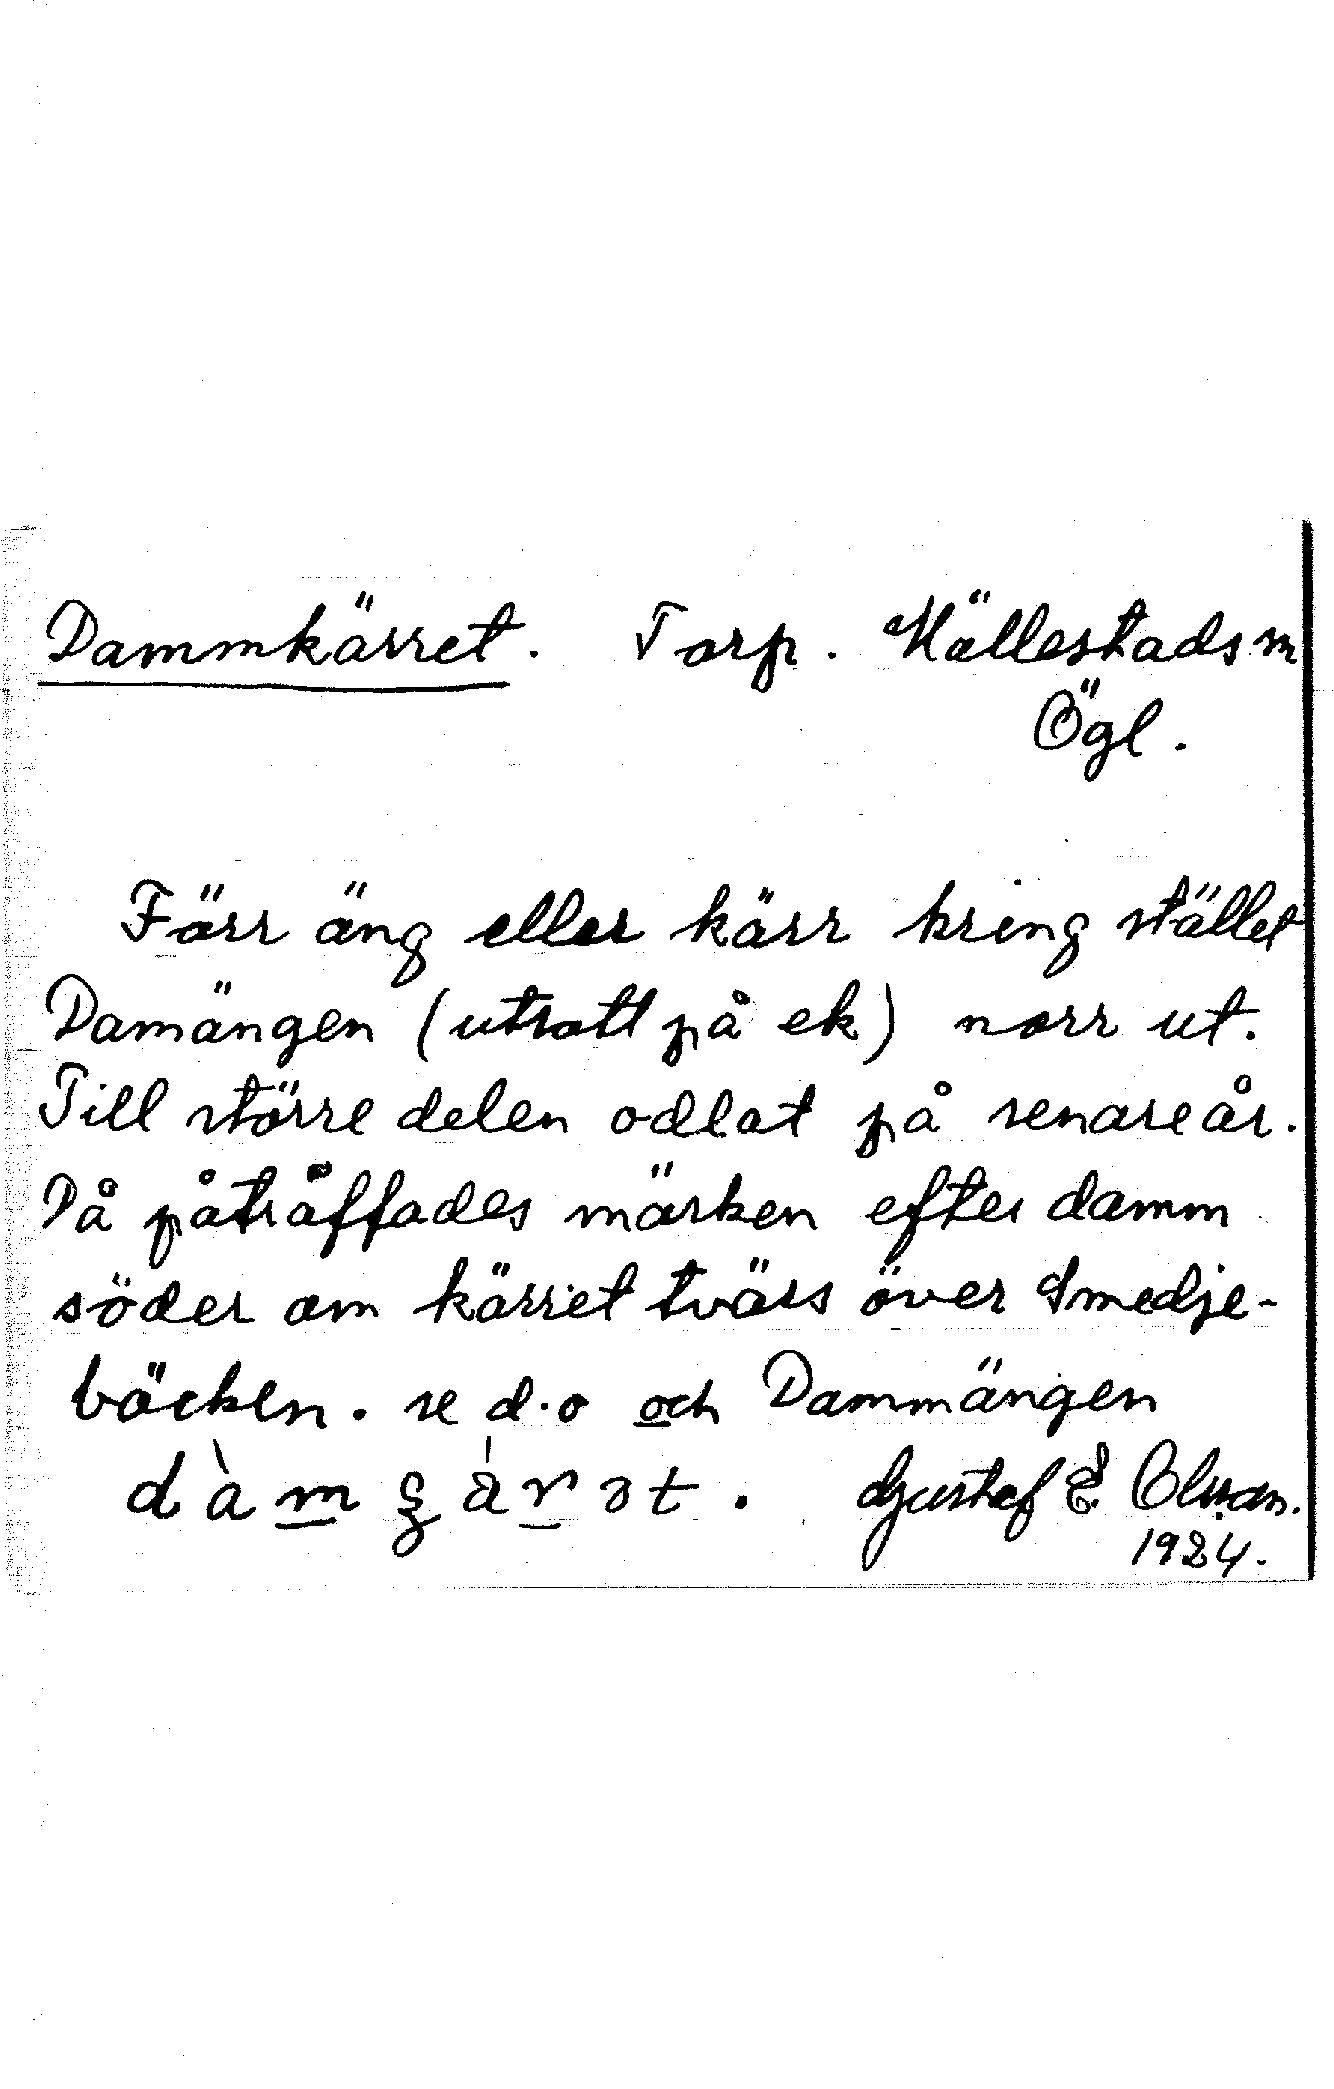 Dammkärret. Torp. Hällestads sn
Ögl.
Förr äng eller kärr kring stället
Damängen (utsatt på ek) norr ut.
Till större delen odlat på senare år.
Då påträffades märken efter damm
söder om kärret tvärs över Smedje-
bäcken. se d.o och Dammängen
Gustaf E. Olsson.
1924.